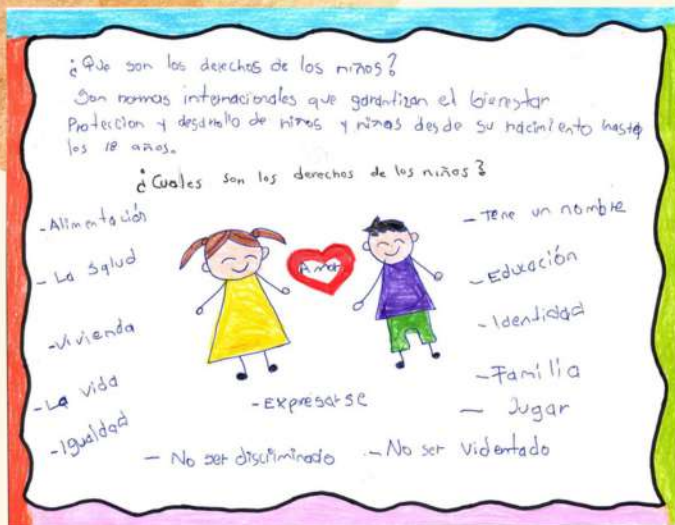 ¿Que son los derechos de los niños?
Son normas internacionales que garantizan el bienestar
Proteccion y desarrollo de niños y niñas desde su nacimiento hasta
los 18 años.
¿Cuales son los derechos de los niños?
-Alimentación
- La Salud
-Vivienda
-La vida
-Igualdad
Amor
-Expresarse
- No ser discriminado
- Tene un nombre
-Educación
-Identidad
-Familia
- Jugar
-No ser Violentado